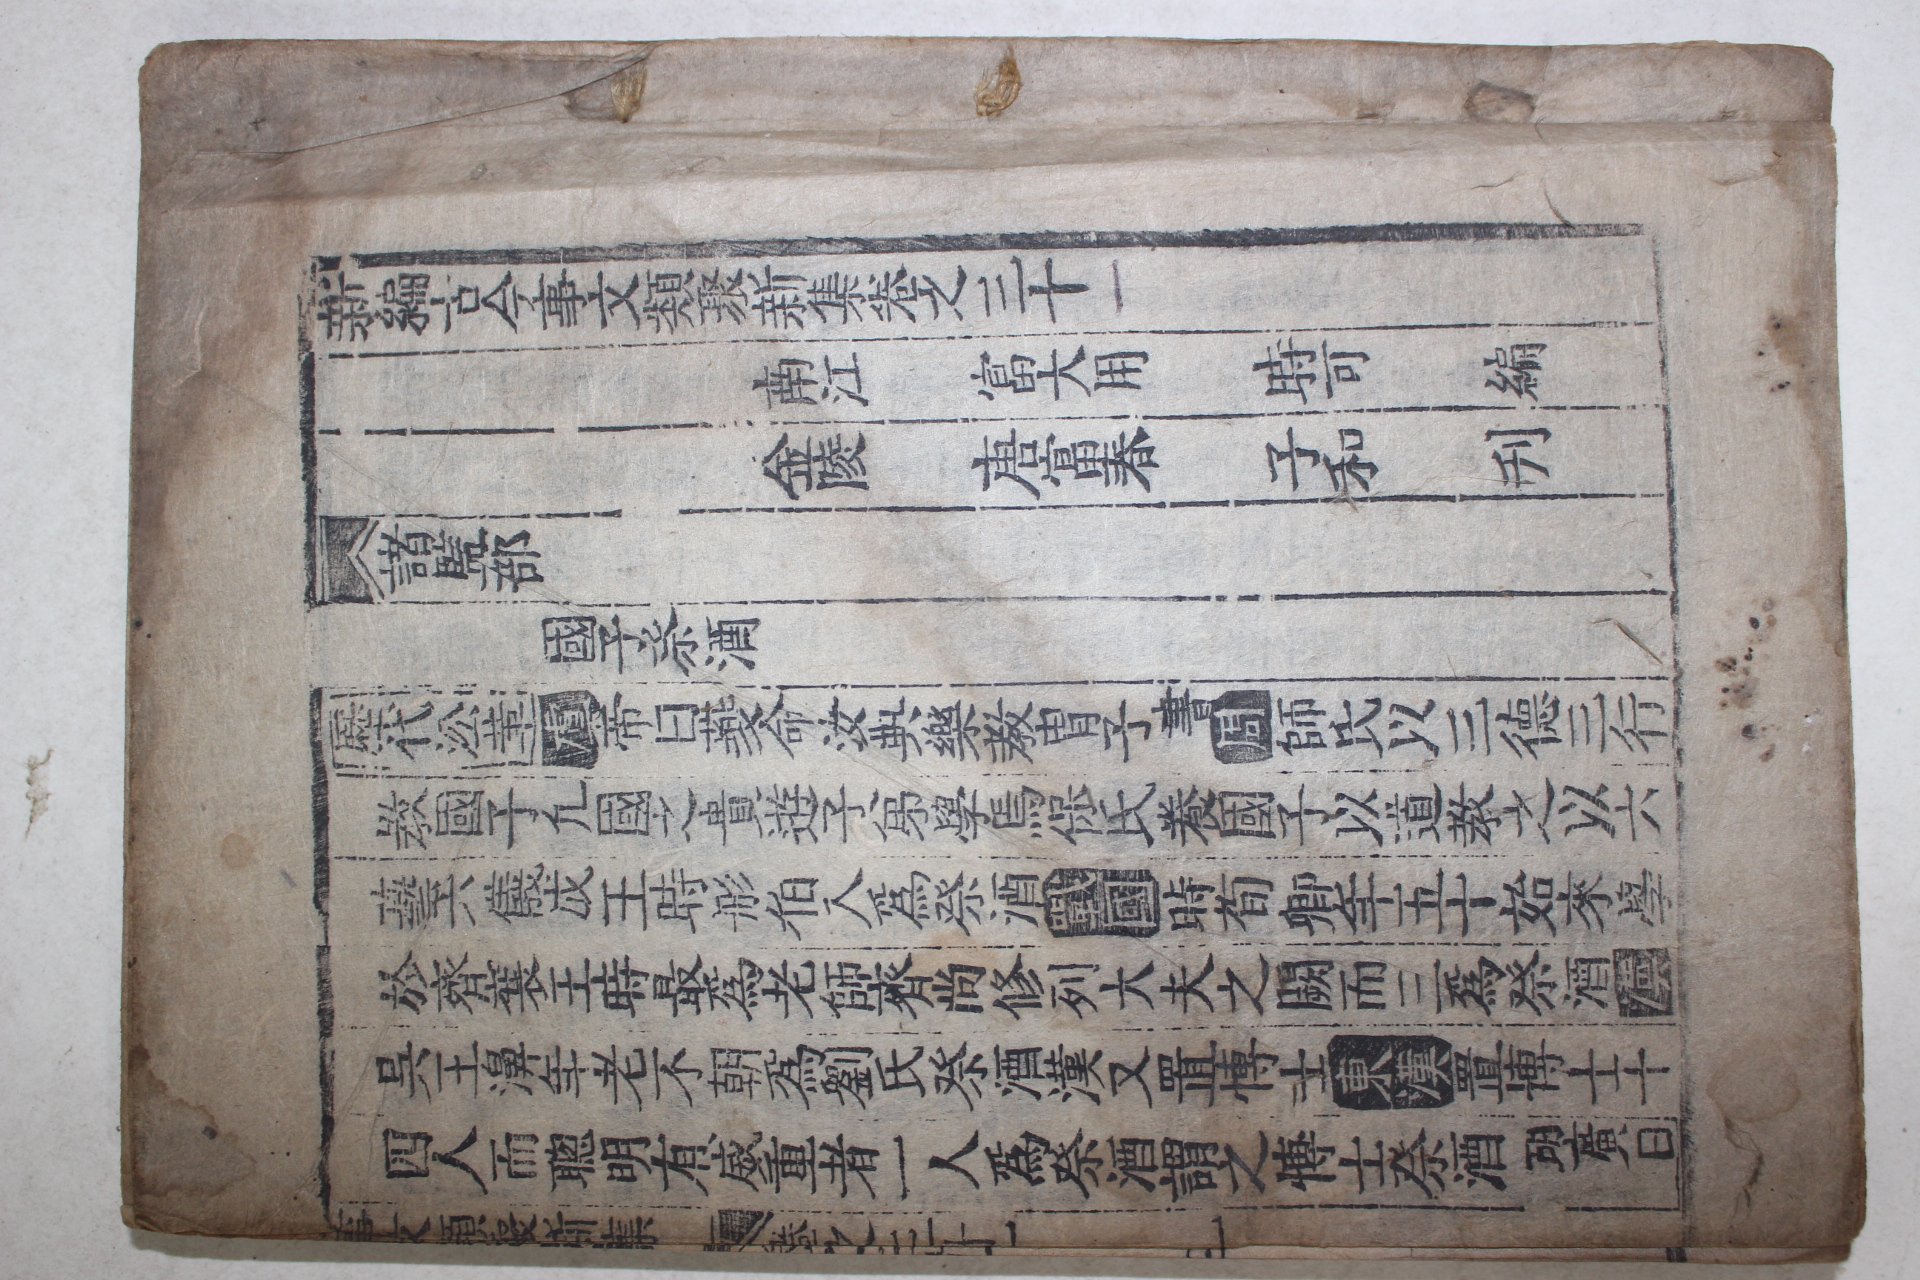 新編古今事文類聚新集卷之三十一
南江　富大用　時可　編
金陵　唐富春　子和　刋
諸監部
國子祭酒
歷代沿革虞帝曰夔命汝典樂教胄子書周師氏以三德三行
教國子凡國之貴遊子弟學焉保氏養國子以道教之以六
藝六儀成王時彤伯入爲祭酒戰國時荀卿年五十始來學
於齊襄王時最爲老師齊尚修列大夫之闕而三爲祭酒漢
吳王濞年老不朝爲劉氏祭酒漢又置博士東漢置博士十
四人而聰明有威重者一人爲祭酒謂之博士祭酒胡廣曰
事文類聚新集　卷之三十一　一